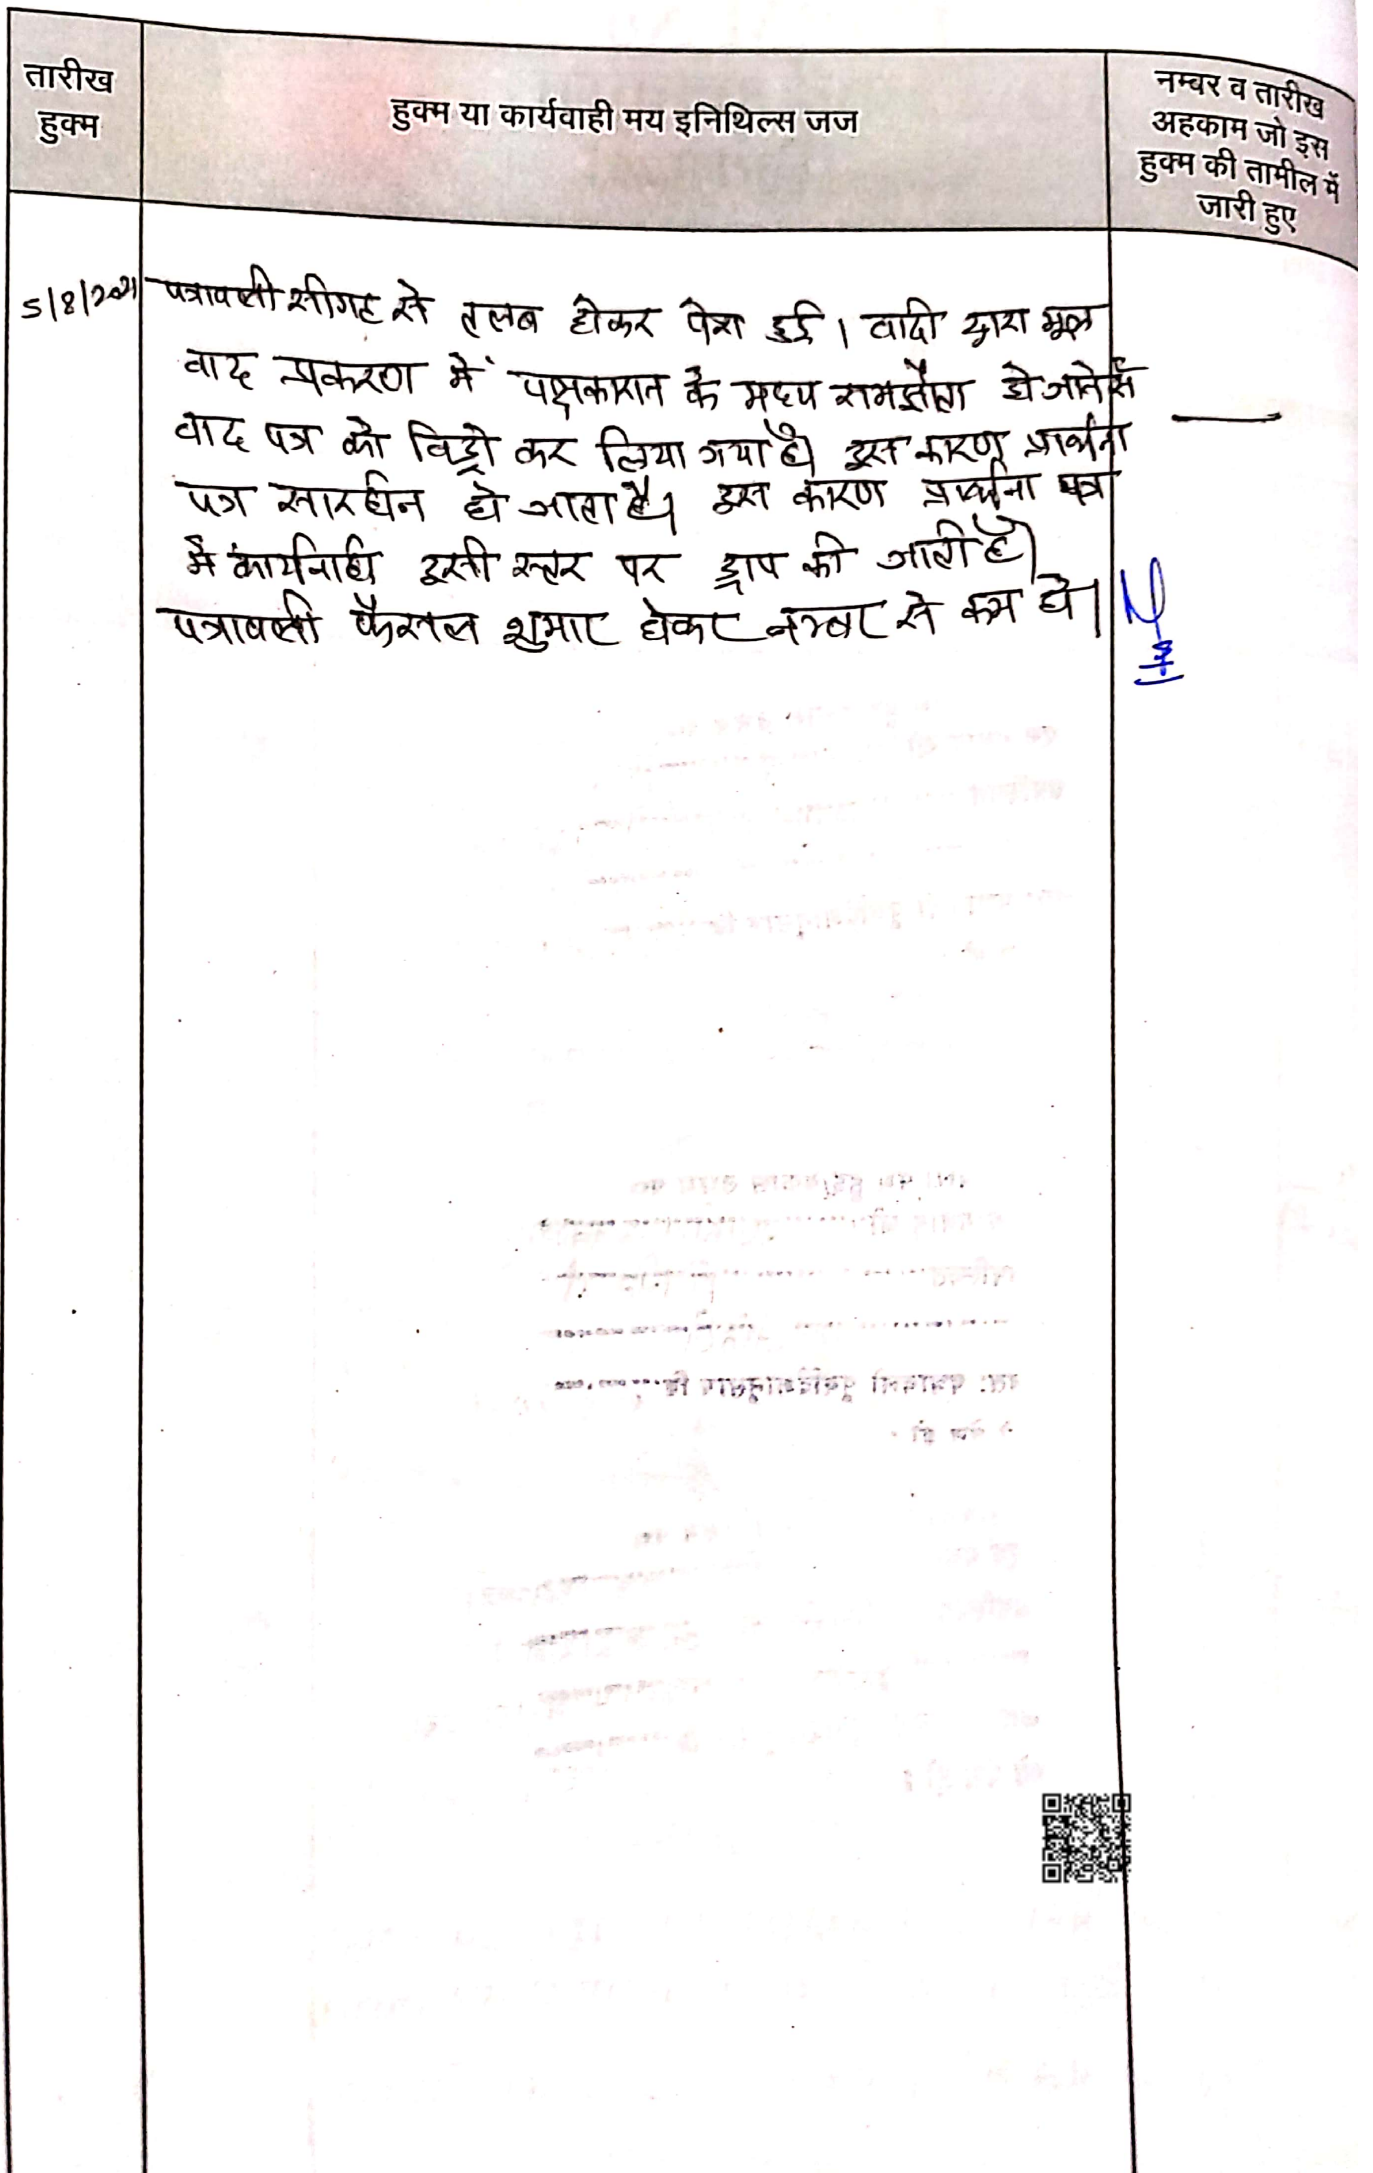 तारीख
हुक्म
हुक्म या कार्यवाही मय इनिथिल्स जज
नम्बर व तारीख
अहकाम जो इस
हुक्म की तामील में
जारी हुए
5/8/2021
पत्रावली सीगह से तलब होकर पेश हुई। वादी द्वारा मूल
वाद प्रकरण में पक्षकारान के मध्य समझौता हो जाने से
वाद पत्र को विड्रो कर लिया गया है। इस कारण प्रार्थना
पत्र सारहीन हो जाता है। इस कारण प्रार्थना पत्र
में कार्यवाही इसी स्तर पर ड्राप की जाती है।
पत्रावली फैसल शुमार होकर नम्बर से कम हो।